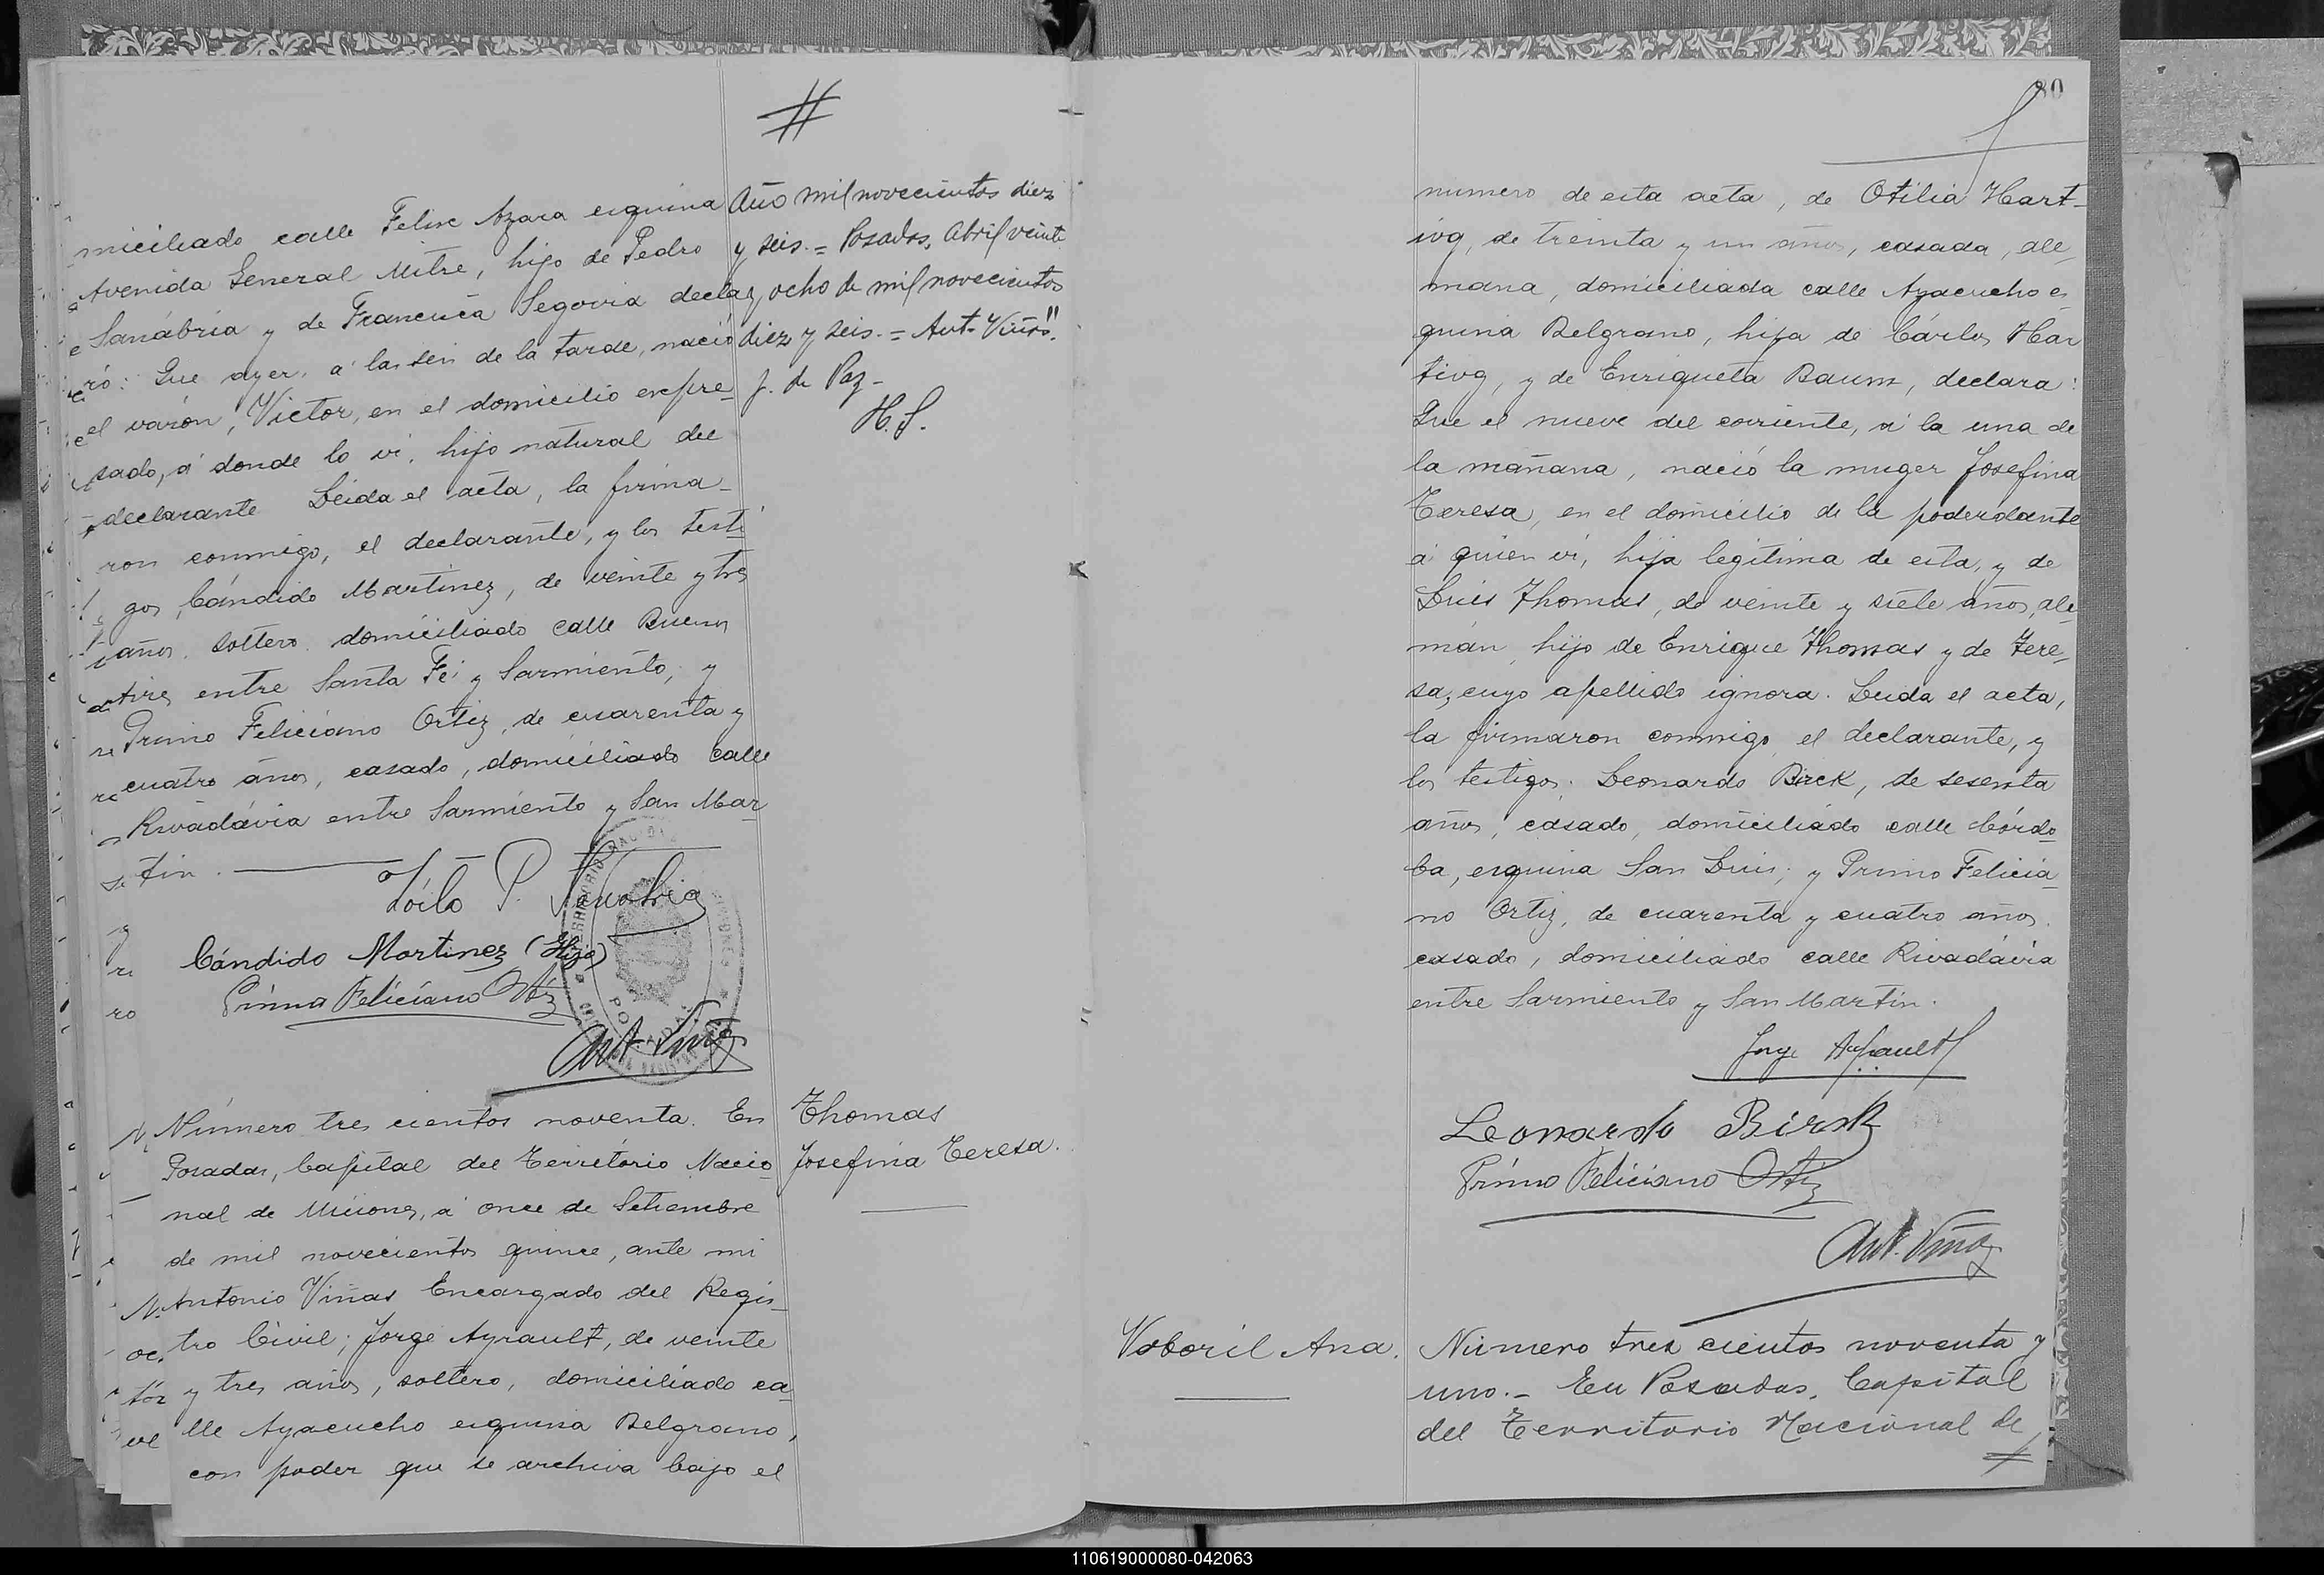 #
miciliado calle Felix Azara esquina
Avenida General Mitre, hijo de Pedro
Sanábria y de Francisca Segovia decla
ró: Que ayer, á las seis de la tarde, nació
el varón, Victor, en el domicilio expre_
sado, á donde lo ví, hijo natural del
declarante Leida el acta, la firma_
ron conmigo, el declarante, y los testi
gos, Cándido Martinez, de veinte y tres
años, soltero, domiciliado calle Buenos
Aires entre Santa Fé y Sarmiento, y
Primo Feliciano Ortiz, de cuarenta y
cuatro años, casado, domiciliado calle
Rivadávia entre Sarmiento y San Mar
tin.
P. Sanabria
Cándido Martinez (Hijo)
Primo Feliciano Ortiz
Ant. Viñas
Año mil novecientos diez
y seis. = Posadas, Abril veinte
y ocho de mil novecientos
diez y seis. = Ant. Viñas"
J. de Paz -
H. S.
Número tres cientos noventa. En
Posadas, Capital del Território Nacio
nal de Misiones, á once de Setiembre
de mil novecientos quince, ante mi
Antonio Viñas Encargado del Regis_
tro Civil; Jorge Ayrault, de veinte
y tres años, soltero, domiciliado ca
lle Ayacucho esquina Belgrano,
con poder que se archiva bajo el
Thomas
Josefina Teresa.
80
numero de esta acta, de Otilia Hart_
ivg, de treinta y un años, casada, ale_
mana, domiciliada calle Ayacucho es
quina Belgrano, hija de Cárlos Har
tivg, y de Enriqueta Baum, declara:
Que el nueve del corriente, á la una de
la mañana, nació la muger Josefina
Teresa, en el domicilio de la poderdante
á quien ví, hija legitima de esta, y de
Luis Thomas, de veinte y siete años, ale
mán, hijo de Enrique Thomas y de Tere_
sa, cuyo apellido ignora. Leida el acta,
la firmaron conmigo, el declarante, y
los testigos: Leonardo Birck, de sesenta
años, casado, domiciliado calle Córdo
ba, esquina San Luis; y Primo Felicia_
no Ortiz, de cuarenta y cuatro años,
casado, domiciliado calle Rivadávia
entre Sarmiento y San Martin.
Jorge Ayrault
Leonardo Birck
Primo Feliciano Ortiz
Ant. Viñas
Voboril Ana.
Número tres cientos noventa y
uno.- En Posadas, Capital
del Territorio Nacional de
110619000080-042063